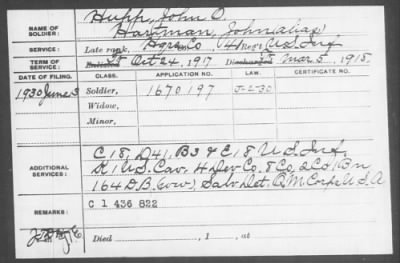 NAME OF SOLDIER: Hupp, John O.
Hartman, John (alias)
SERVICE: Late rank, Hqrs Co 41 Reg't U.S. Inf
TERM OF SERVICE: Enlisted Oct 24, 1917 Discharged Mar. 5, 1915.
DATE OF FILING. CLASS. APPLICATION NO. LAW. CERTIFICATE NO.
1930 June 3 Soldier, 1670197 J-2-30
Widow,
Minor,
ADDITIONAL SERVICES: C 18, D41, B3 & E, 18 U.S. Inf,
K, U.S. Cav. H Dev Co. 8 Co, 2 Co 1 Bn
164 D.B. (WW) Salv Det. Q.M. Corps U.S.A
REMARKS: C 1 436 822
Died , 1 , at